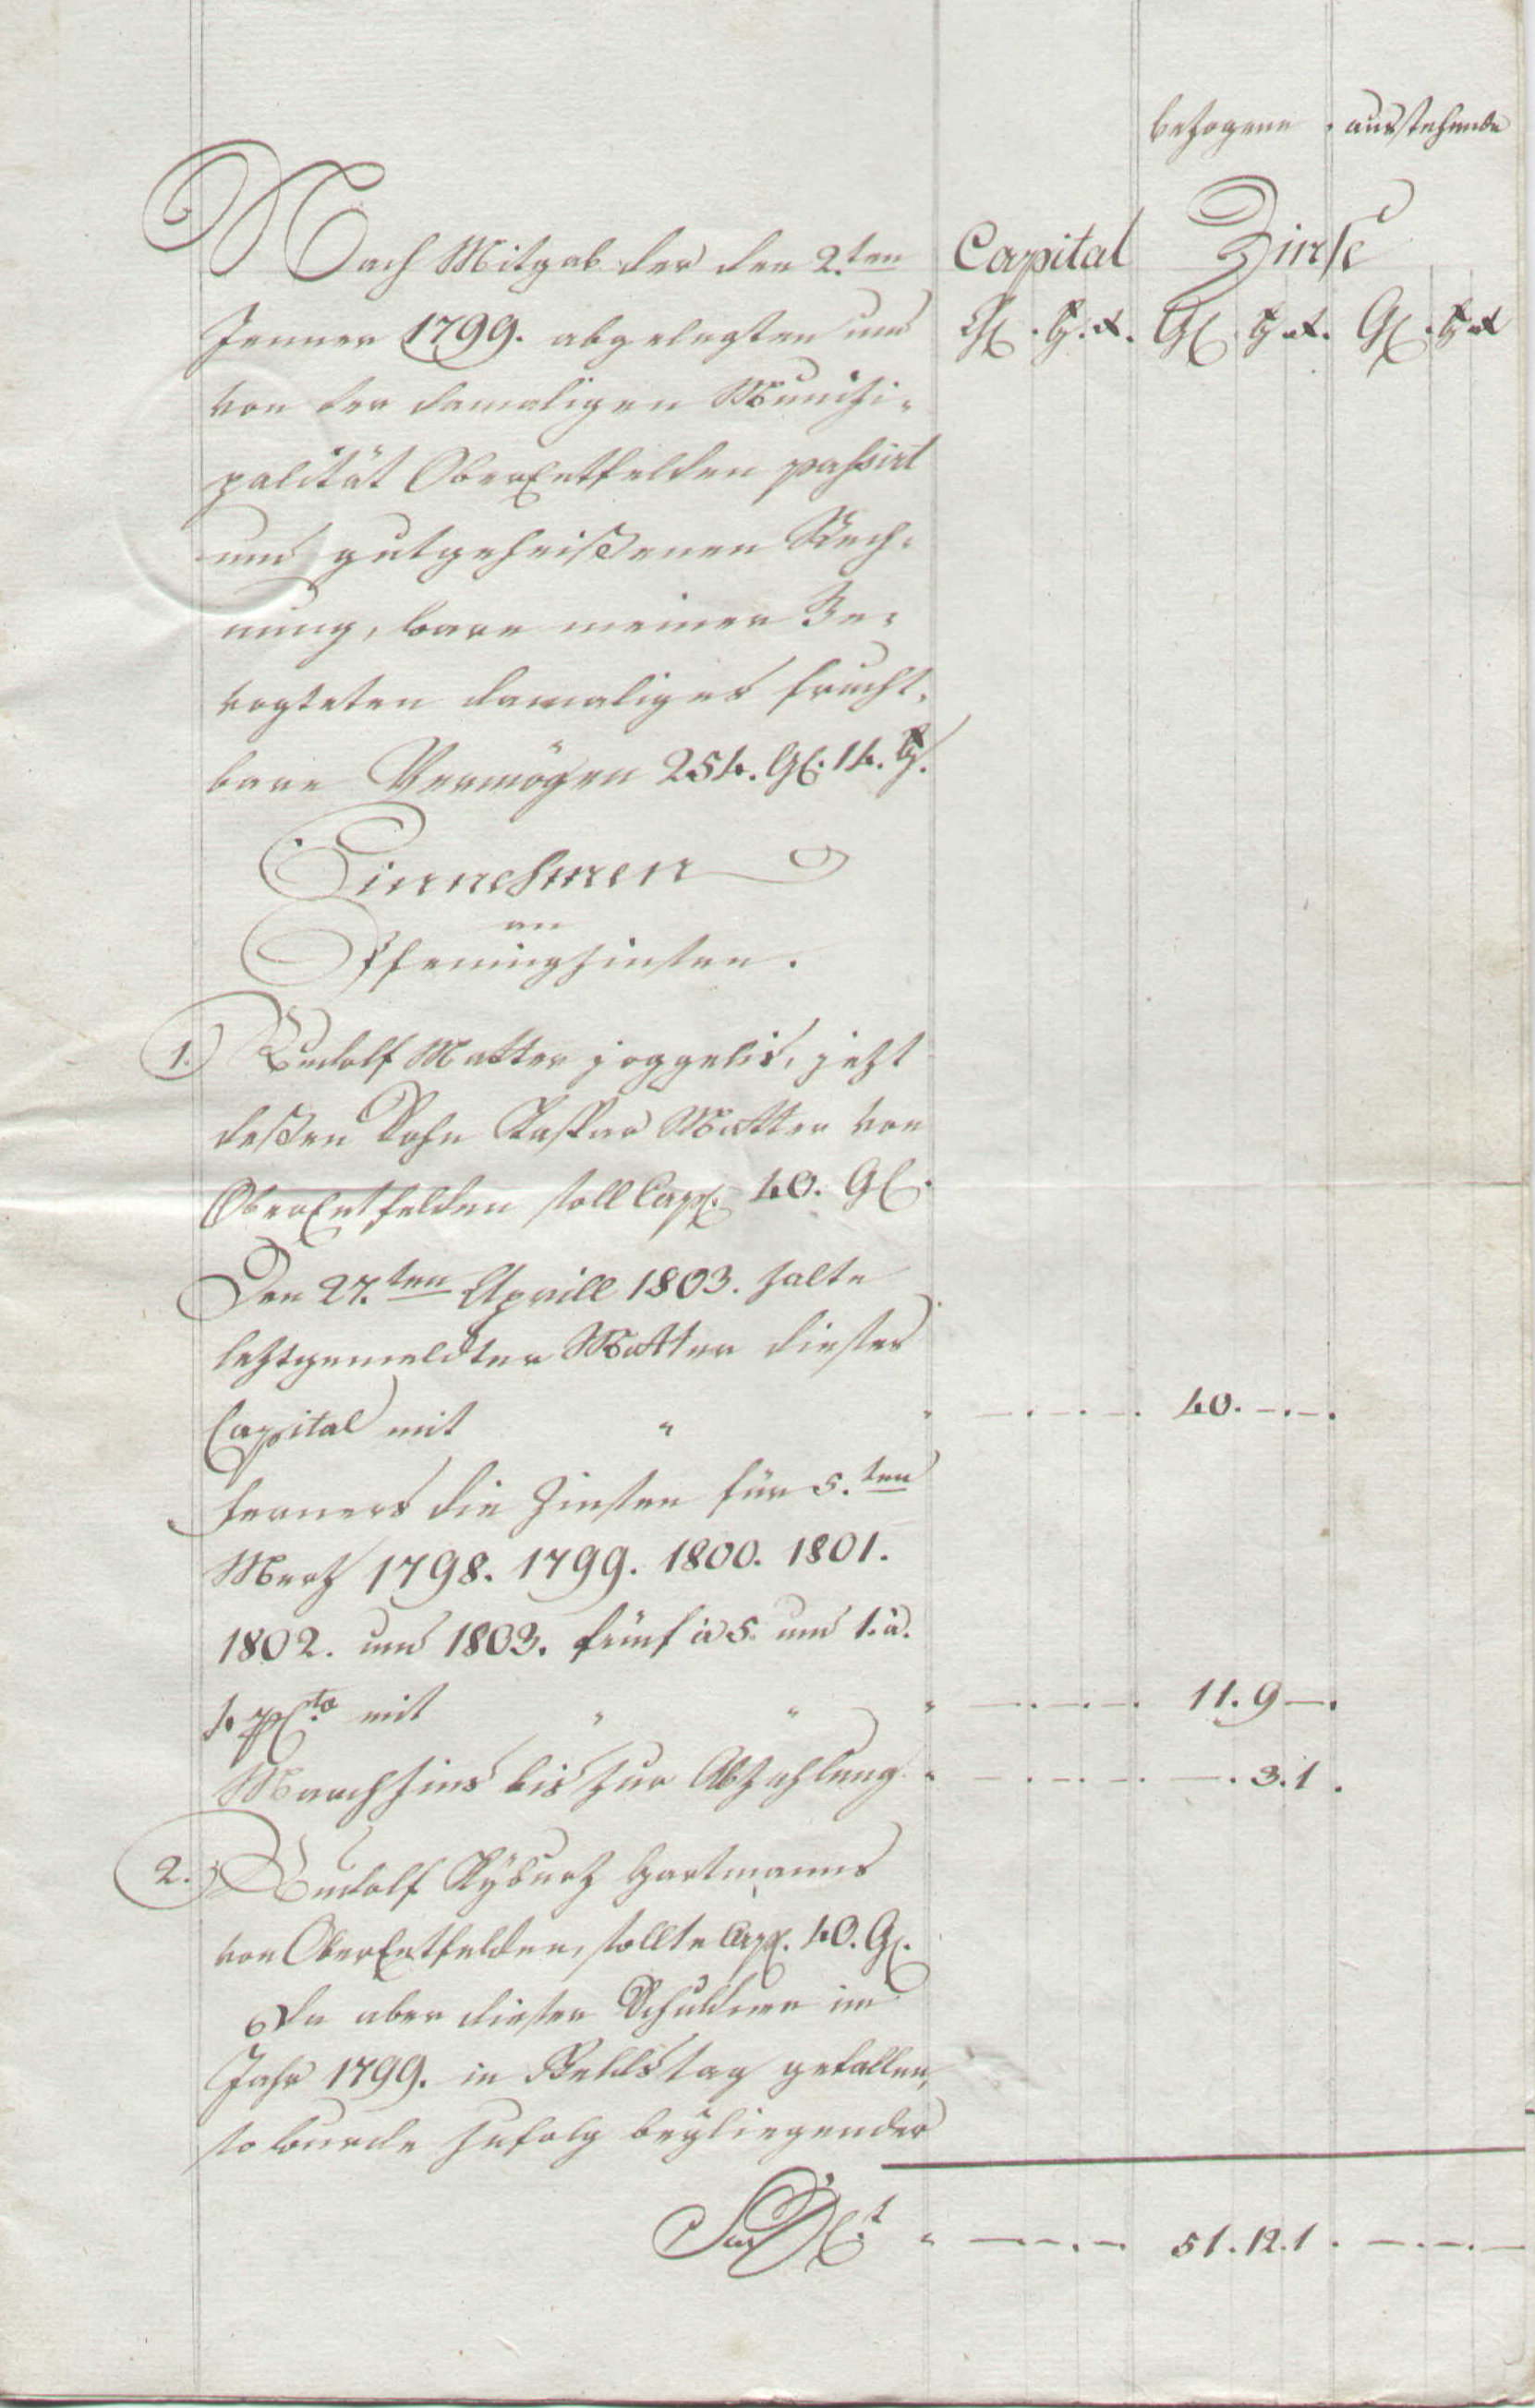 bezogene . ausstehende
Capital Zinse
Gl. bz. x. Gl. bz. x. Gl. bz x
Nach Mitgab der den 2.ten
Jenner 1799. abgelegten und
von der damaligen Munizi-
palität OberEntfelden passirt
und gutgeheißenen Rech-
nung, ware meiner Be-
vogteten damaliges frucht-
bare Vermögen 254. Gl. 14. bz.
Einnehmen
an
Pfeningzinsen.
1. Rudolf Matter joggelis, jezt
deßen Sohn Kaspar Matter von
OberEntfelden soll Cap. 40. Gl.
Den 27.ten Aprill 1803. zalte
leztgemeldter Matter dieses
Capital mit " " —.—.—. 40.—.—.
ferners die Zinsen für 5.ten
Merz 1798. 1799. 1800. 1801.
1802. und 1803. fünf à 5. und 1. à.
4 pCto mit " " " —.—.—. 11. 9 —.
Marchzins bis zur Abzahlung. " —.—.—. —. 3. 1.
2. Rudolf Kyburz Hartmanns
von OberEntfelden, sollte Cap. 40. Gl.
Da aber dieser Schuldner im
Jahr 1799. in Geldstag gefallen,
so wurde zufolg beyliegender
" —.—.— 51. 12. 1. —.—.—